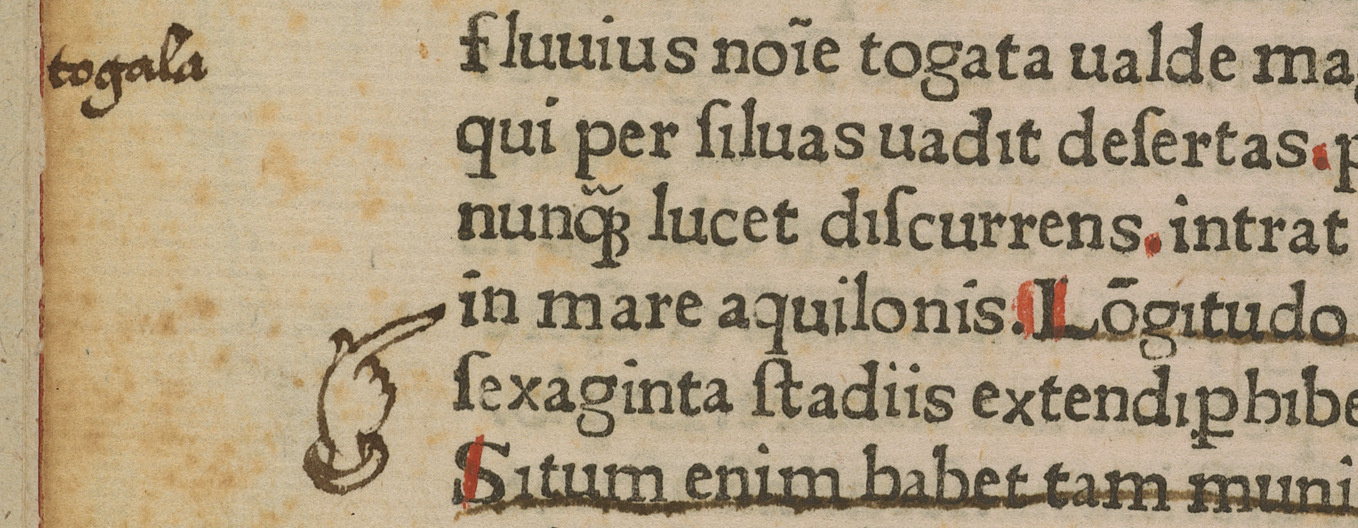 togala
fluuius noīe togata ualde ma
qui per ſiluas uadit deſertas. p
nunq̃ꝫ lucet diſcurrens. intrat
in mare aquilonis. Lōgitudo
ſexaginta ſtadiis extendi ꝑhibe
Situm enim habet tam muni